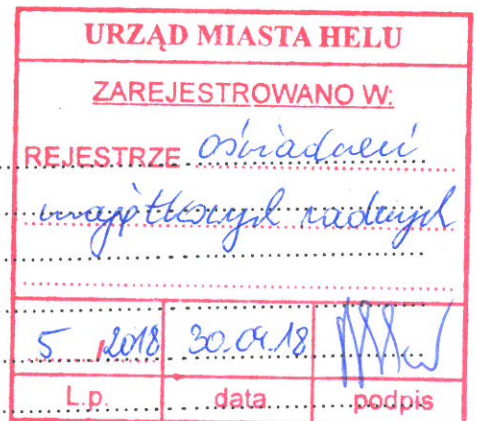 URZĄD MIASTA HELU
ZAREJESTROWANO W:
REJESTRZE oświadczeń
majątkowych radnych
5 2018 30.04.18
L.p. data podpis